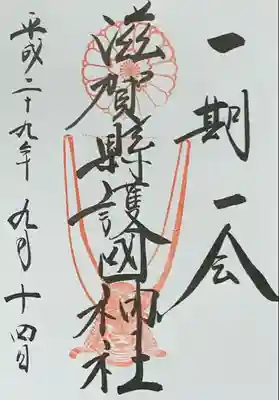 一期一会
滋賀縣護國神社
平成二十九年 九月 十四日